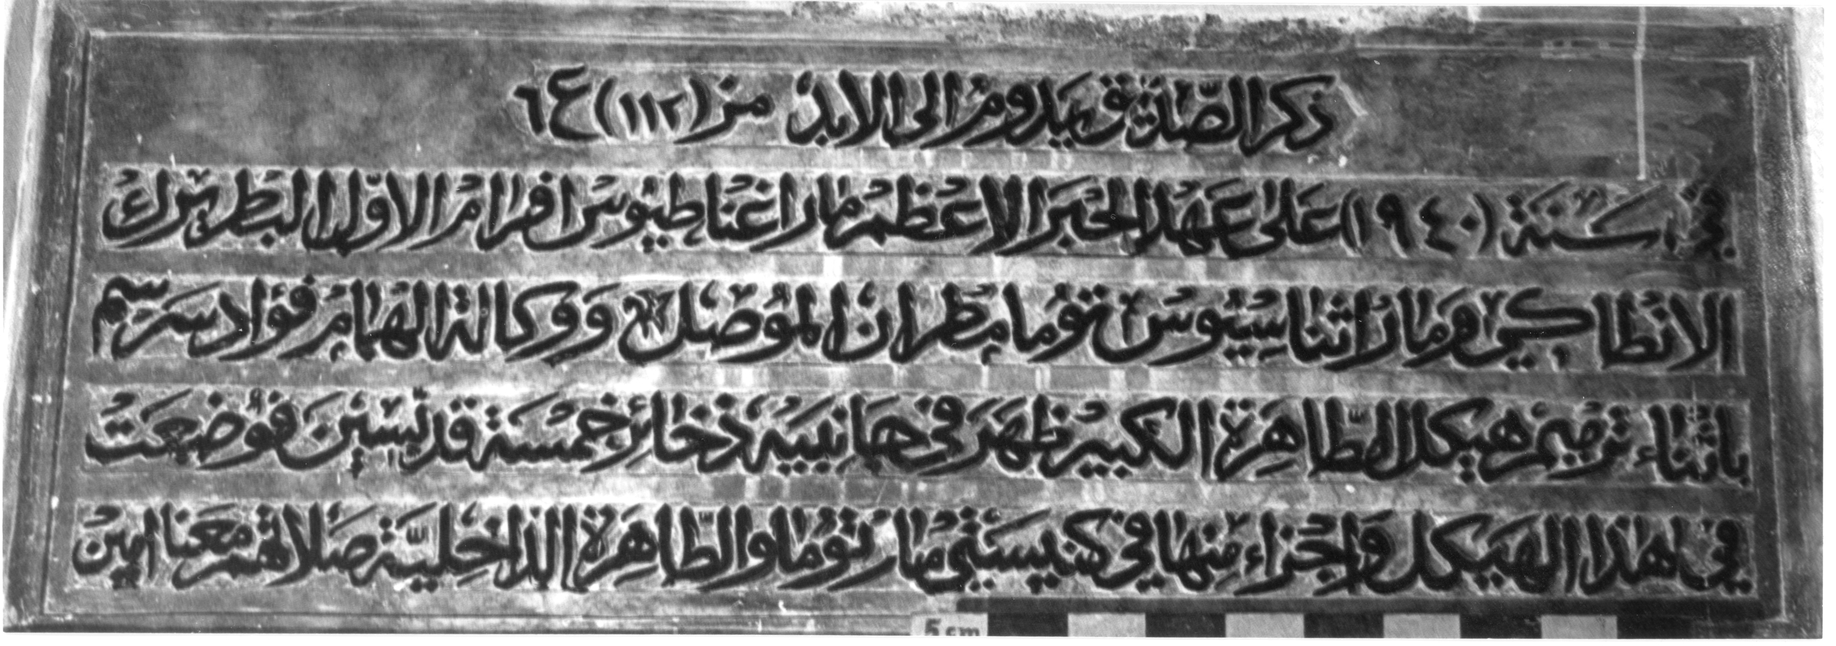 ذكر الصّدّيق يدوم الى الابد مز (١١٢) ع ٦
في سنة (١٩٤٠) على عهد الحبر الاعظم مار اغناطيوس افرام الاوّل البطريرك
الانطاكي ومار اثناسيوس توما مطران الموصل ووكالة الهمام فؤاد سرسم
باثناء ترميم هيكل الطّاهرة الكبير ظهر في جانبيه ذخائر خمسة قدّيسين فوضعت
في هذا الهيكل واجزاء منها في كنيستي مار توما والطّاهرة الداخليّة صلاتهم معنا امين
5 cm